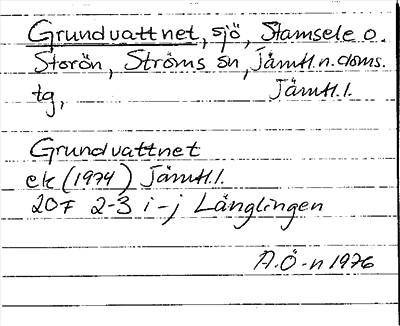 Grundvattnet, sjö, Stamsele o.
Storön, Ströms sn, Jämtl.n.doms.
tg, Jämtl.l.
Grundvattnet
ek (1974) Jämtl.l.
20F 2-3 i-j Långlingen
A.Ö-n 1976